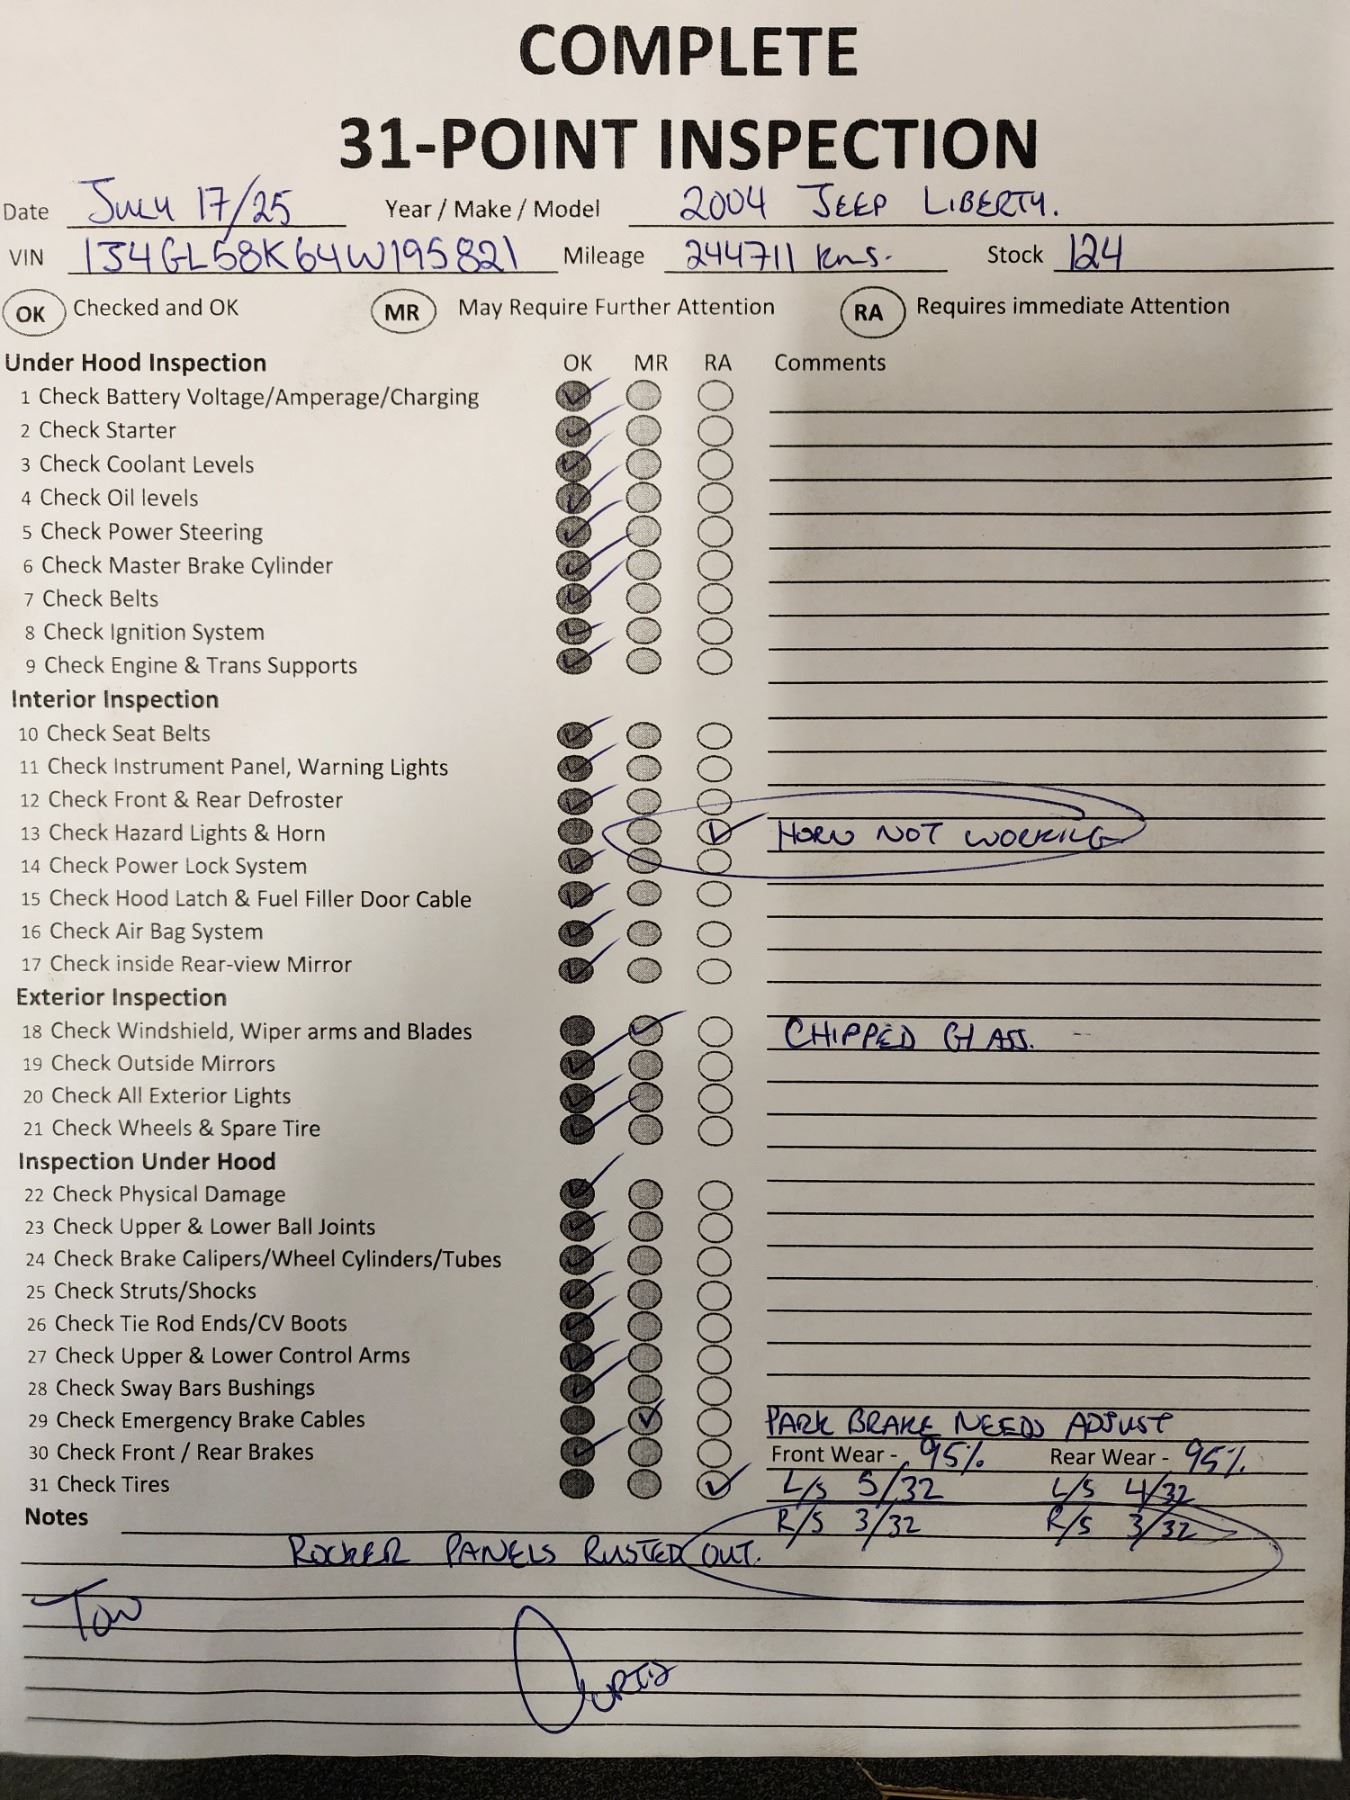 COMPLETE
31-POINT INSPECTION
Date July 17/25 Year / Make / Model 2004 JEEP LIBERTY.
VIN 1J4GL58K64W195821 Mileage 244711 kms. Stock 124
OK Checked and OK MR May Require Further Attention RA Requires immediate Attention
Under Hood Inspection OK MR RA Comments
1 Check Battery Voltage/Amperage/Charging
2 Check Starter
3 Check Coolant Levels
4 Check Oil levels
5 Check Power Steering
6 Check Master Brake Cylinder
7 Check Belts
8 Check Ignition System
9 Check Engine & Trans Supports
Interior Inspection
10 Check Seat Belts
11 Check Instrument Panel, Warning Lights
12 Check Front & Rear Defroster
13 Check Hazard Lights & Horn HORN NOT WORKING
14 Check Power Lock System
15 Check Hood Latch & Fuel Filler Door Cable
16 Check Air Bag System
17 Check inside Rear-view Mirror
Exterior Inspection
18 Check Windshield, Wiper arms and Blades CHIPPED GLASS.
19 Check Outside Mirrors
20 Check All Exterior Lights
21 Check Wheels & Spare Tire
Inspection Under Hood
22 Check Physical Damage
23 Check Upper & Lower Ball Joints
24 Check Brake Calipers/Wheel Cylinders/Tubes
25 Check Struts/Shocks
26 Check Tie Rod Ends/CV Boots
27 Check Upper & Lower Control Arms
28 Check Sway Bars Bushings
29 Check Emergency Brake Cables PARK BRAKE NEEDS ADJUST
30 Check Front / Rear Brakes Front Wear - 95% Rear Wear - 95%
31 Check Tires L/S 5/32 L/S 4/32
Notes R/S 3/32 R/S 3/32
ROCKER PANELS RUSTED OUT.
CURTIS